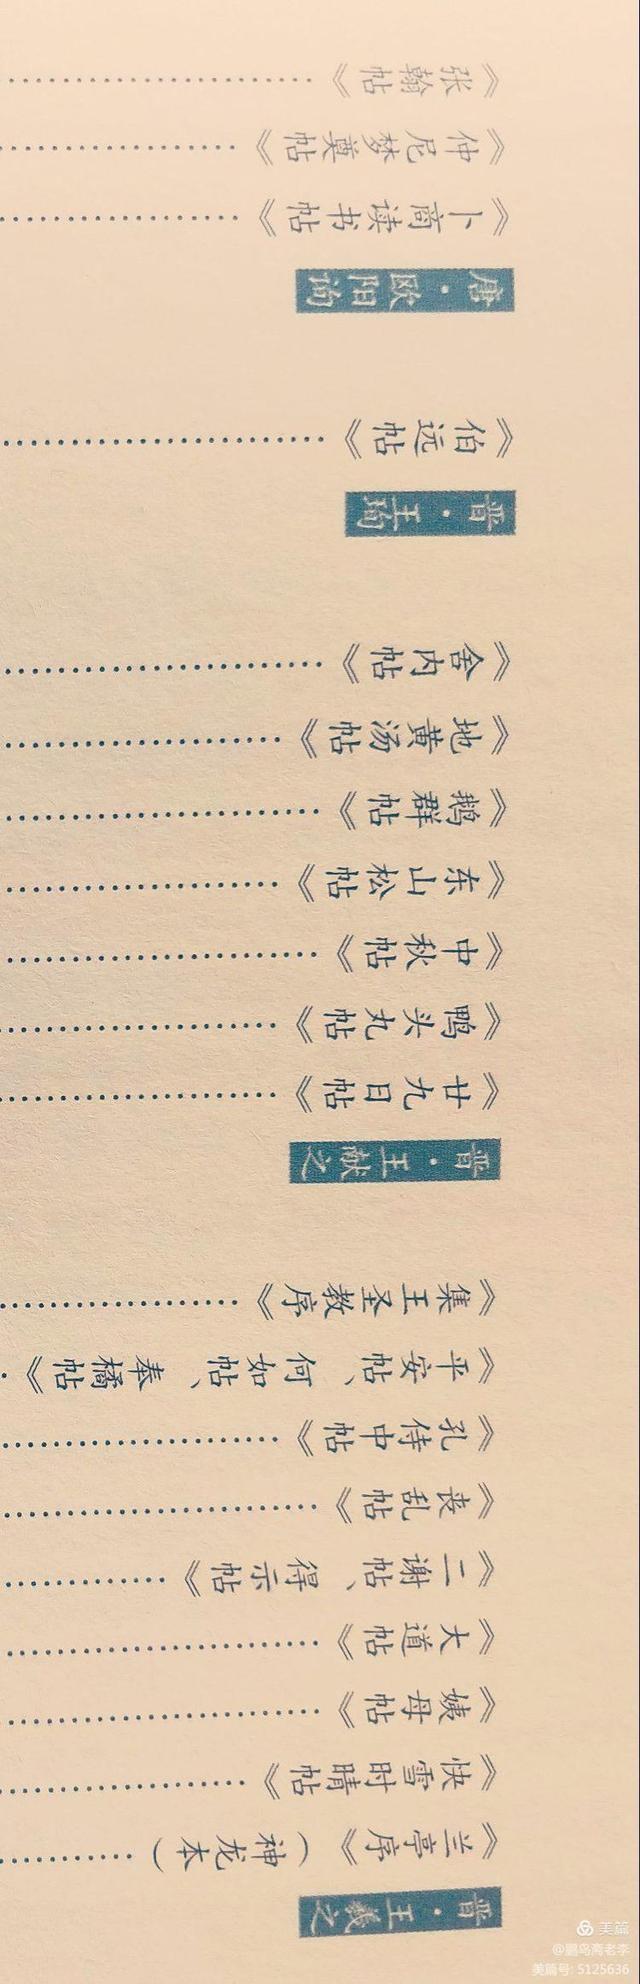 晋·王羲之
《兰亭序》（神龙本）
《快雪时晴帖》
《姨母帖》
《大道帖》
《二谢帖、得示帖》
《丧乱帖》
《孔侍中帖》
《平安帖、何如帖、奉橘帖》
《集王圣教序》
晋·王献之
《廿九日帖》
《鸭头丸帖》
《中秋帖》
《东山松帖》
《鹅群帖》
《地黄汤帖》
《舍内帖》
晋·王珣
《伯远帖》
唐·欧阳询
《卜商读书帖》
《仲尼梦奠帖》
《张翰帖》
美篇
@鹏鸟斋老李
美篇号: 5125636